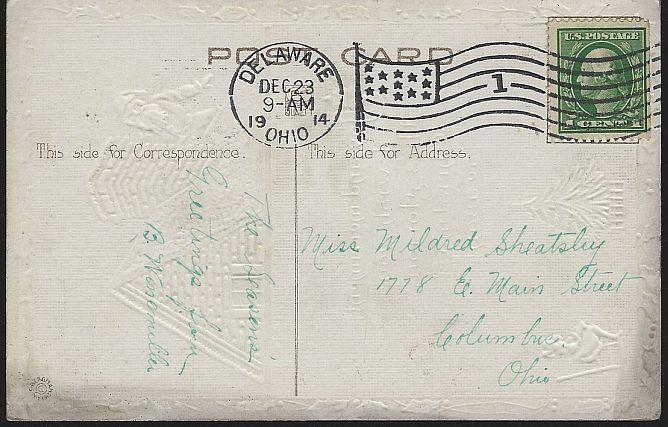 POST CARD
DELAWARE
DEC 23
9-AM
1914
OHIO
1
U.S. POSTAGE
1 CENT 1
This side for Correspondence.
This side for Address.
The Season's
Greetings from
B.
Miss Mildred Sheatsley
1778 E. Main Street
Columbus.
Ohio